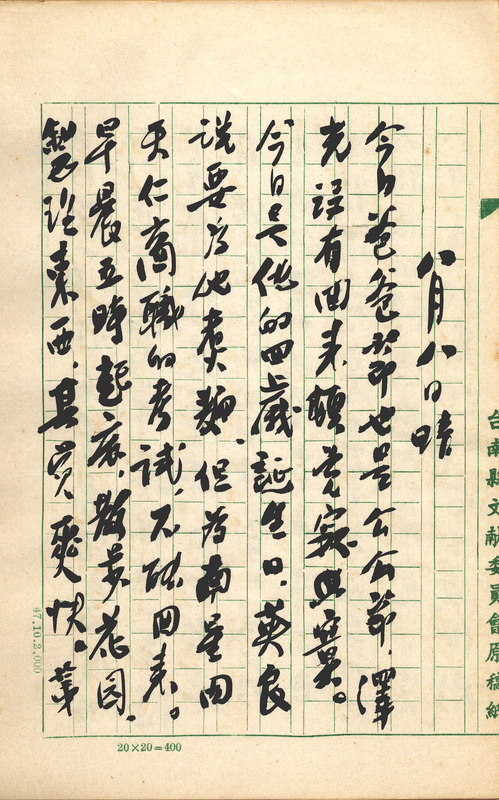 台南縣文献委員會原稿紙
八月八日晴
今日爸爸節也是公公節,澤
光沒有回来,頗覺寂與寞。
今日是他的四歲誕生日,英良
说要为他煮麵,但为南星回
天仁商職的考試,不能回来。
早晨五時起床,散步花园,
整理東西,真实爽快。
20×20=400
47.10.2.000